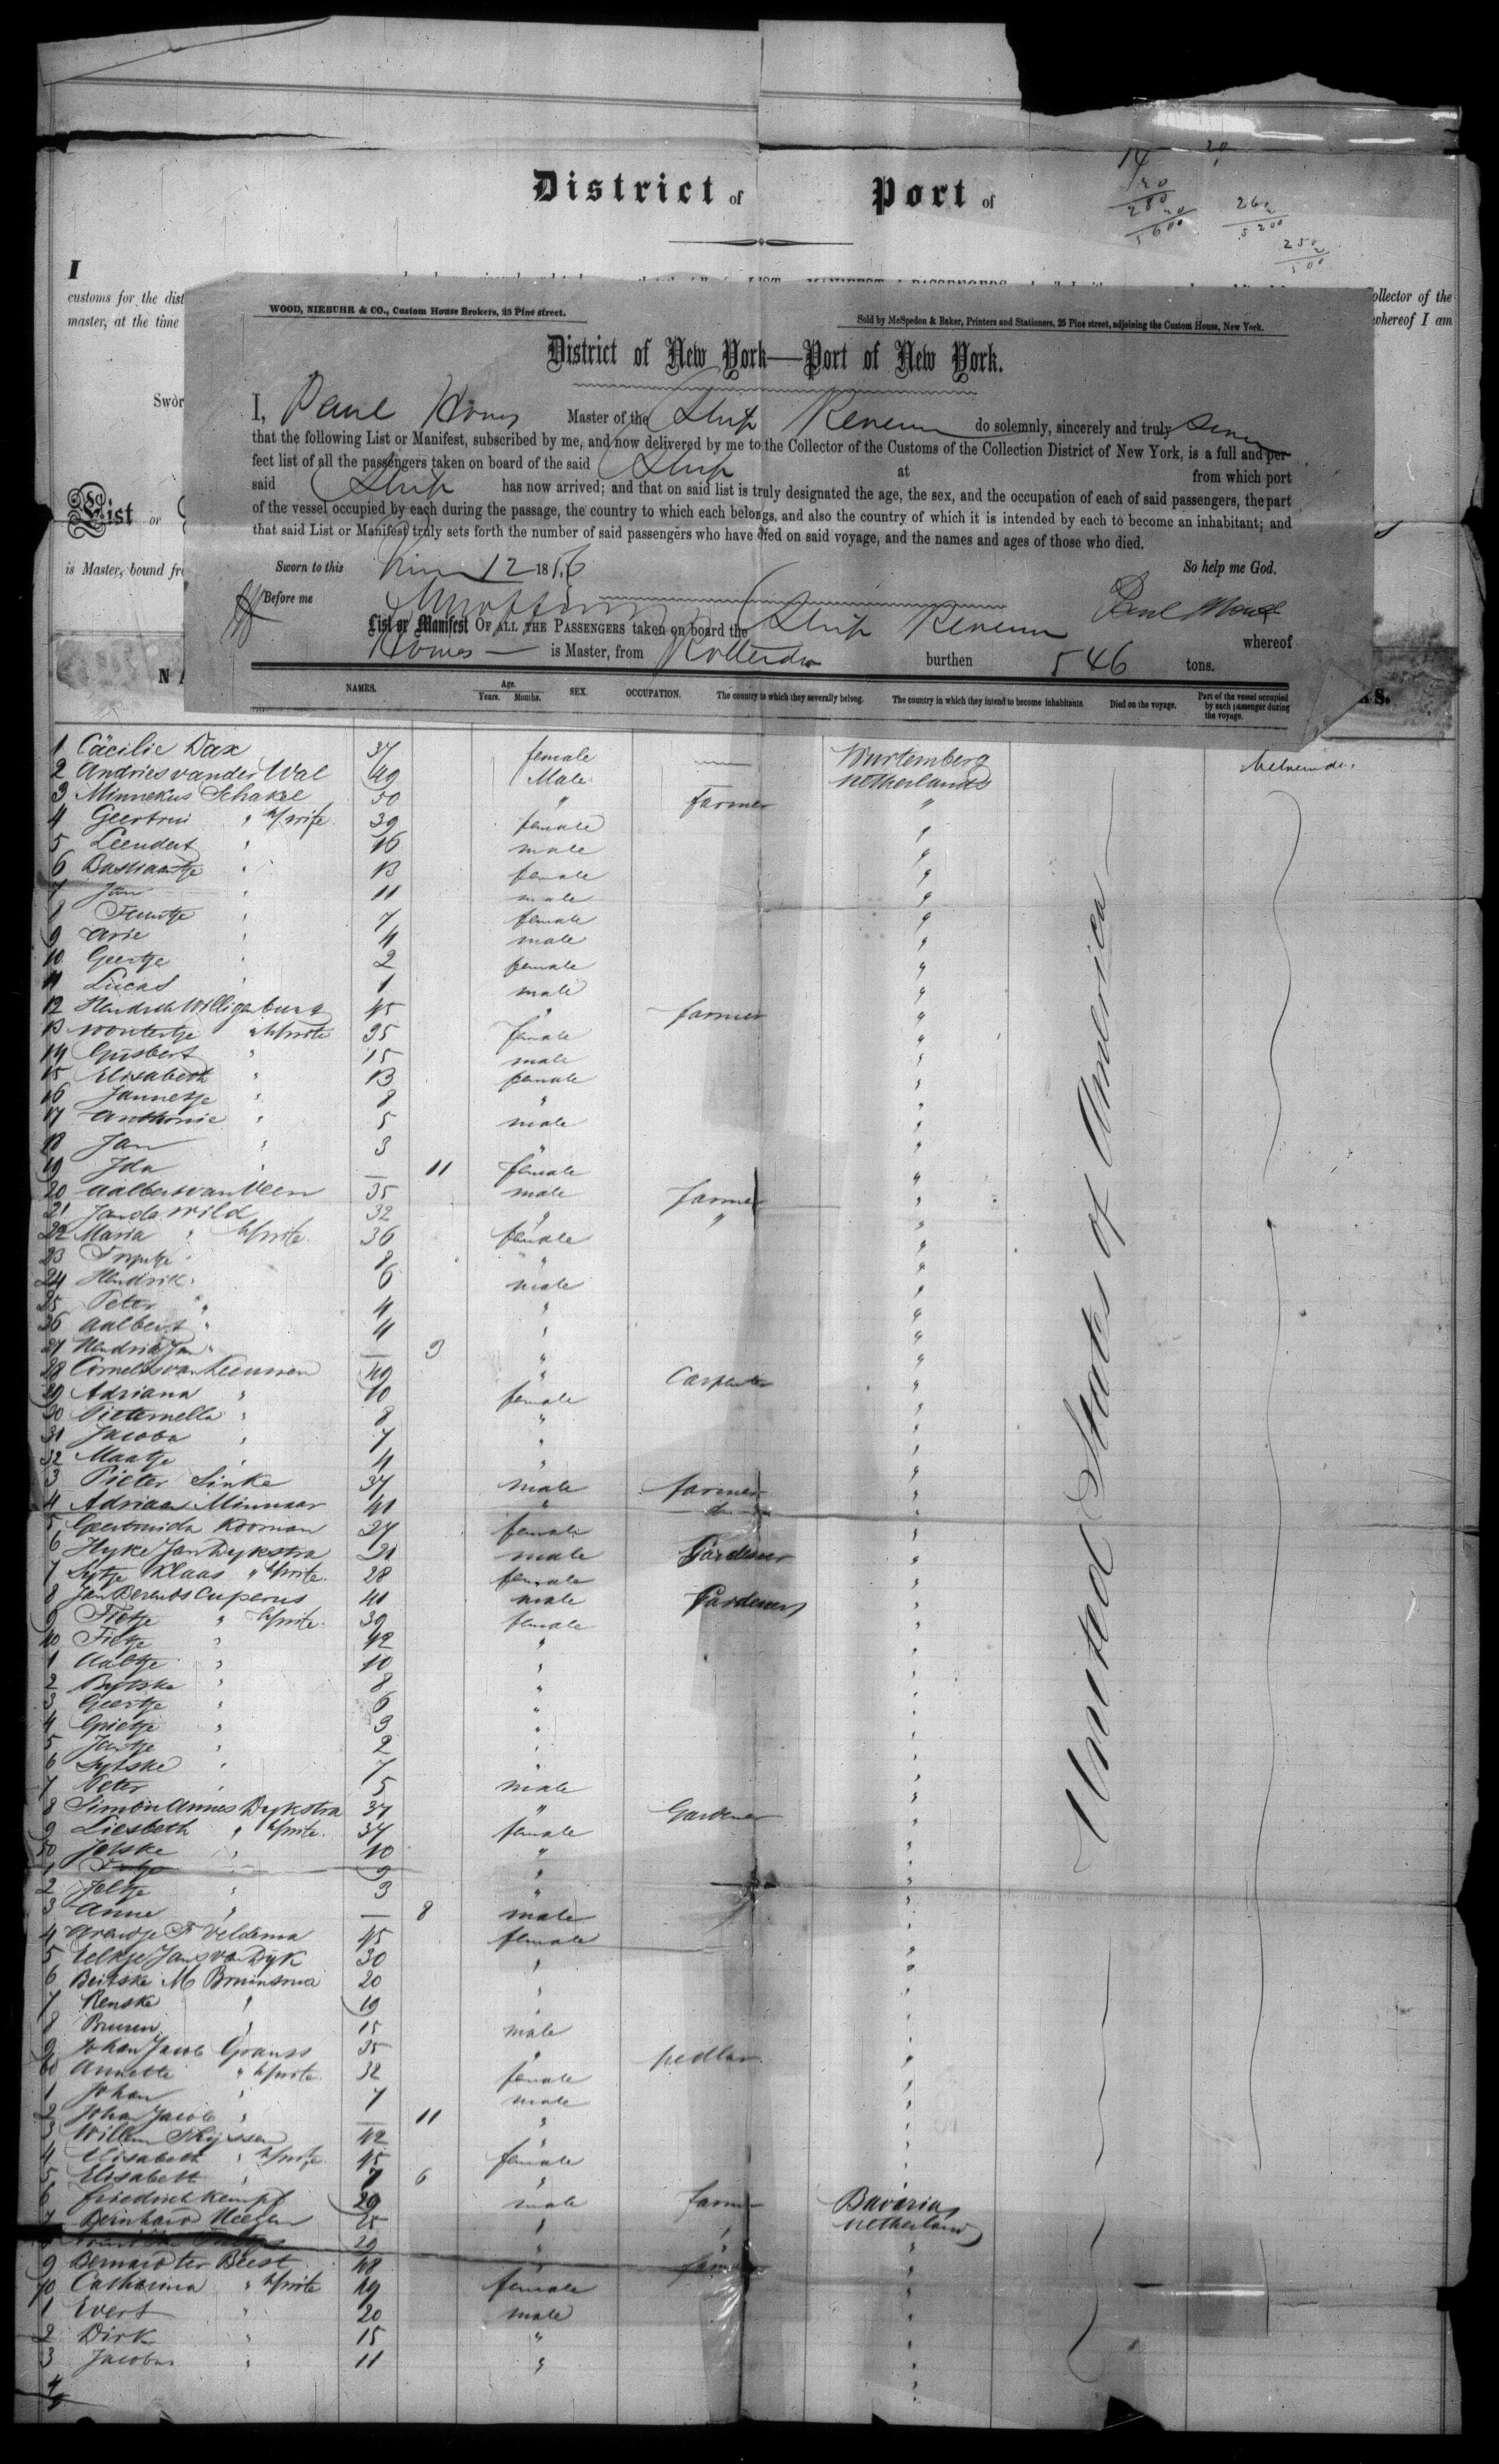 District of Port of
14 20
120
280
20
5600
260
5200
250
500
I
customs for the dist
ollector of the
master, at the time
whereof I am
Swor
List or
is Master, bound fr
WOOD, NIEBUHR & CO., Custom House Brokers, 25 Pine street.
Sold by McSpedon & Baker, Printers and Stationers, 25 Pine street, adjoining the Custom House, New York.
District of New York—Port of New York.
I, Paul Master of the Ship do solemnly, sincerely and truly swear
that the following List or Manifest, subscribed by me, and now delivered by me to the Collector of the Customs of the Collection District of New York, is a full and per-
fect list of all the passengers taken on board of the said Ship at from which port
said Ship has now arrived; and that on said list is truly designated the age, the sex, and the occupation of each of said passengers, the part
of the vessel occupied by each during the passage, the country to which each belongs, and also the country of which it is intended by each to become an inhabitant; and
that said List or Manifest truly sets forth the number of said passengers who have died on said voyage, and the names and ages of those who died.
Sworn to this 12 1856 So help me God.
Before me Paul
List or Manifest OF ALL THE PASSENGERS taken on board the Ship whereof
is Master, from Rotterdam burthen 546 tons.
NAMES. Age. Years. Months. SEX. OCCUPATION. The country to which they severally belong. The country in which they intend to become inhabitants. Died on the voyage. Part of the vessel occupied by each passenger during the voyage.
1 Cäcilie Dax 37 female — Wurtemberg
2 Andries vander Wal 49 Male Netherlands
3 Minnekus Schakel 50 " Farmer "
4 Geertrui " h/wife 39 female "
5 Leendert " 16 male "
6 Bastiaantje " 13 female "
7 Jan " 11 male "
8 Teuntje " 7 female "
9 Arie " 4 male "
10 Geertje " 2 female "
11 Lucas " 1 male "
12 Hendrik Willigenburg 45 " farmer "
13 Woutertje " h/wife 35 female "
14 Gijsbert " 15 male "
15 Elisabeth " 13 female "
16 Jannetje " 8 " "
17 Anthonie " 5 male "
18 Jan " 3 " "
19 Ida " — 11 female "
20 Aalbert van Veen 35 male farmer "
21 Jan de Wild 32 " " "
22 Maria " h/wife 36 female "
23 " 8 " "
24 Hendrik " 6 male "
25 Peter " 4 " "
26 Aalbert " 4 " "
27 Hendrik Jan " — 3 " "
28 Cornelis van Leeuwen 49 " Carpenter "
29 Adriana " 10 female "
30 Pieternella " 8 " "
31 Jacoba " 7 " "
32 Maatje " 4 " "
3 Pieter Sinke 37 male farmer "
4 Adriaan Minnaar 41 " do "
5 Geertruida Kooman 27 female "
6 Hyke Jan Dykstra 21 male Gardener "
7 Sytje Klaas " h/wife 28 female "
8 Jan Berends Cuperus 41 male Gardener "
9 Fietje " h/wife 39 female "
10 Fietje " 12 " "
1 Aaltje " 10 " "
2 Bytske " 8 " "
3 Geertje " 6 " "
4 Grietje " 3 " "
5 Jantje " 2 " "
6 Sytske " 7 " "
7 Peter " 5 male "
8 Simon Annes Dykstra 37 " Gardener "
9 Liesbeth " h/wife 37 female "
50 Jelske " 10 " "
1 " 9 " "
2 Jeltje " 3 " "
3 Anne " — 8 male "
4 F Veldema 45 female "
5 Eelkje Jans van Dyk 30 " "
6 Beitske M Bruinsma 20 " "
7 Renske " 19 " "
8 " 15 male "
9 Johan Jacob Grauss 35 " pedlar "
60 Annette " h/wife 32 female "
1 Johan " 7 male "
2 Johan Jacob " — 11 " "
3 Willem Thyssen 42 " "
4 Elisabeth " h/wife 45 female "
5 Elisabeth " 7 6 " "
6 Friedrich Kempf 29 male farmer Bavaria
7 Bernhard 25 " " Netherland
29 " "
9 Bernard ter Beest 48 " farmer "
70 Catharina " h/wife 49 female "
1 Evert " 20 male "
2 Dirk " 15 " "
3 Jacobus " 11 " "
4
United States of America